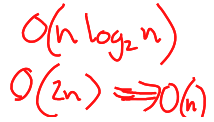 O(n log₂ n)
O(2n) ⟹ O(n)